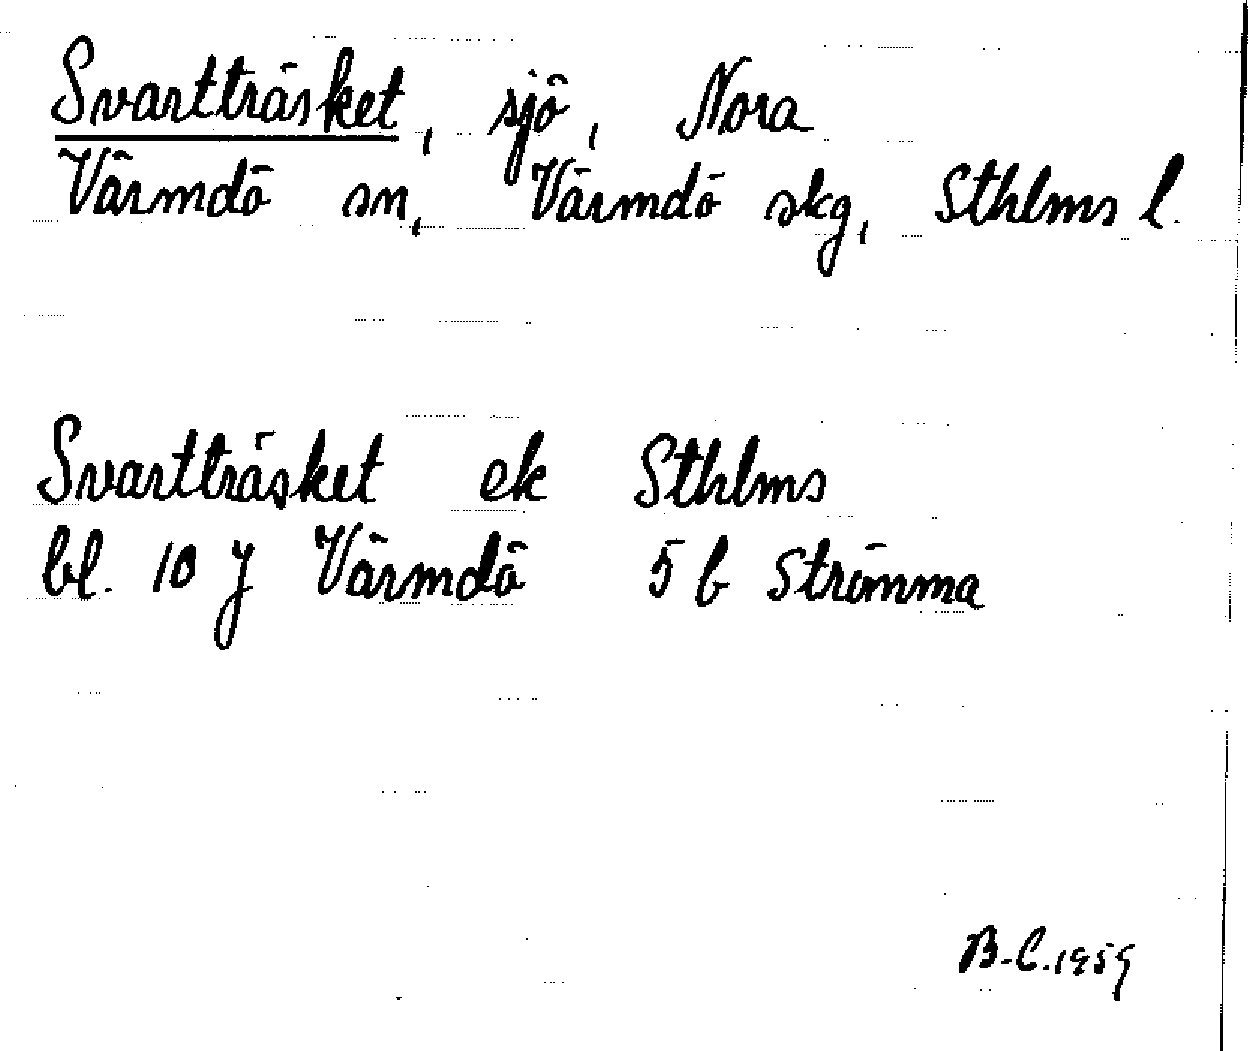 Svartträsket, sjö, Nora
Värmdö sn, Värmdö skg, Sthlms l.
Svartträsket ek Sthlms
bl. 10 J Värmdö 5 b Strömma
B-C. 1959